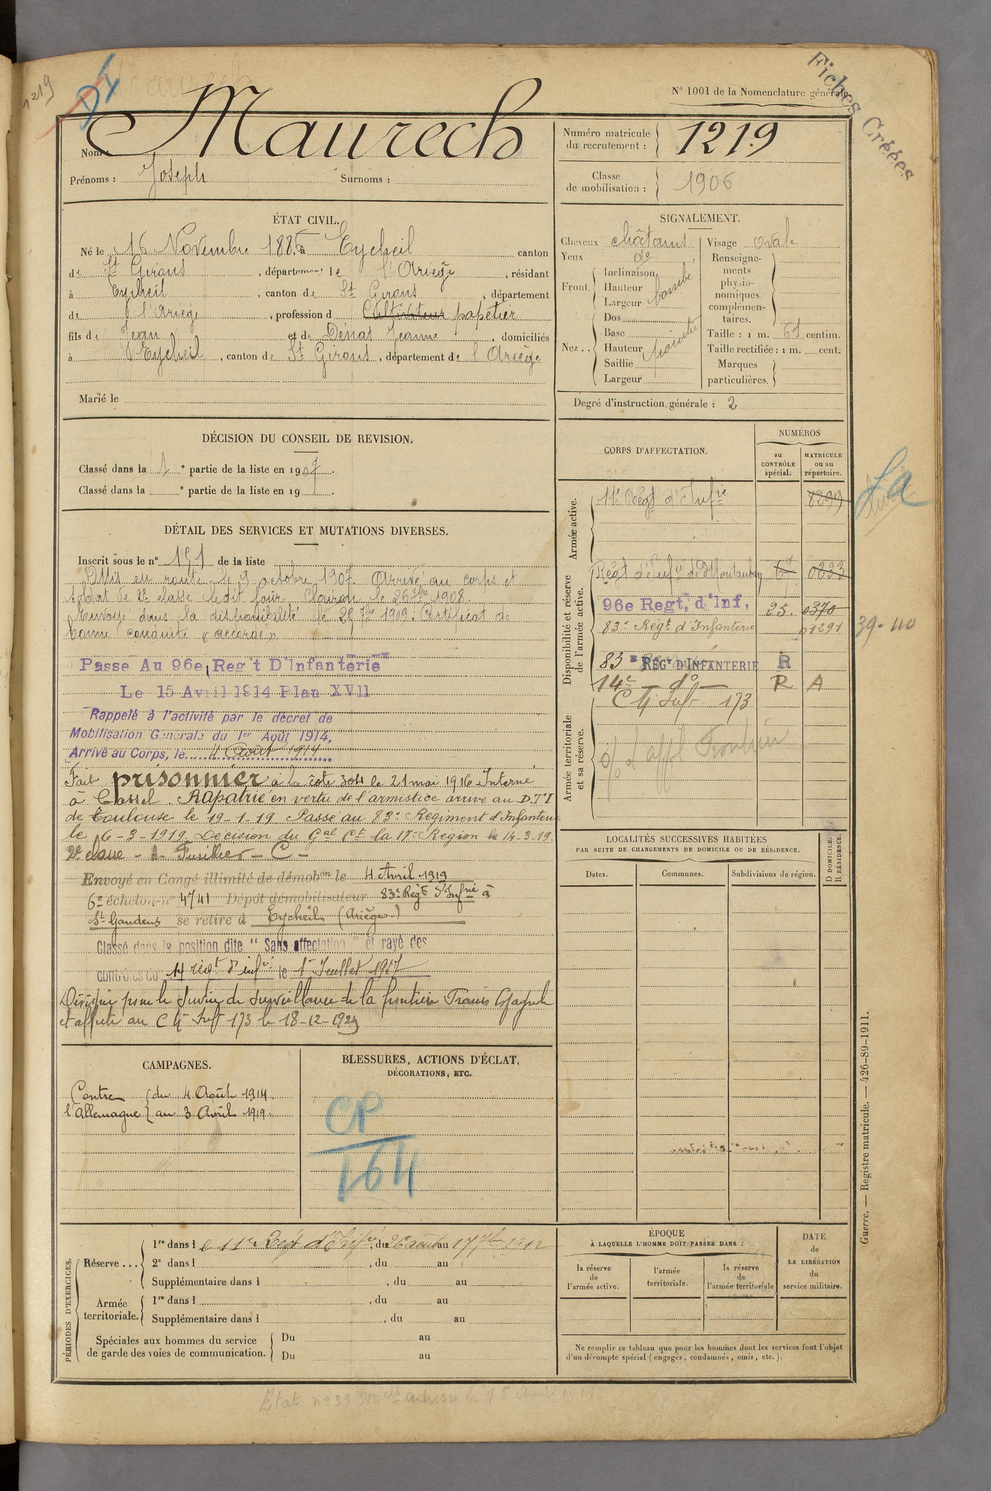 1219
Fiches Créées
N° 1001 de la Nomenclature générale
Nom : Maurech
Prénoms : Joseph Surnoms :
Numéro matricule du recrutement : 1219
Classe de mobilisation : 1906
ÉTAT CIVIL.
Né le 16 Novembre 1886 à Eycheil canton
de St Girons, département de l'Ariège, résidant
à Eycheil, canton de St Girons, département
de l'Ariège, profession de Cultivateur papetier
fils de Jean et de Dénat Jeanne, domiciliés
à Eycheil, canton de St Girons, département de l'Ariège
Marié le
SIGNALEMENT.
Cheveux châtains
Yeux do
Front. Inclinaison
Hauteur
Largeur bombé
Nez.. Dos
Base
Hauteur
Saillie
Largeur
Visage ovale
Renseignements physionomiques complémentaires.
Taille : 1 m. 61 centim.
Taille rectifiée : 1 m. cent.
Marques particulières.
Degré d'instruction générale : 2
DÉCISION DU CONSEIL DE REVISION.
Classé dans la 1 e partie de la liste en 1907.
Classé dans la e partie de la liste en 19 .
DÉTAIL DES SERVICES ET MUTATIONS DIVERSES.
Inscrit sous le n° 151 de la liste
Mis en route le 9 octobre 1907. Arrivé au corps et
soldat de 2e classe ledit jour. Clairon le 26 7bre 1908.
Envoyé dans la disponibilité le 25 7bre 1909. Certificat de
bonne conduite "accordé".
Passé Au 96e Reg't D'Infanterie
Le 15 Avril 1914 Plan XVII
Rappelé à l'activité par le décret de
Mobilisation Générale du 1er Août 1914,
Arrivé au Corps, le 4 Août 1914
Fait prisonnier à la côte 304 le 21 mai 1916 Interné
à Cassel. Rapatrié en vertu de l'armistice arrivé au D.T.I
de Toulouse le 19-1-19 Passé au 83e Régiment d'Infanterie
le 16-3-1919. Décision du Gal Ct la 17e Région le 14-3-19.
2e classe - A- Fusilier - C -
Envoyé en Congé illimité de démobon le 4 Avril 1919
6e échelon n° 4741 Dépôt démobilisateur 83e Régt d'Infrie à
St Gaudens se retire à Eycheil (Ariège)
Classé dans la position dite "Sans affectation" et rayé des
contrôles du 14 régt d'infie le 1er Juillet 1927
Désigné pour le Service de surveillance de la frontière Franco Espagnole
et affecté au C Mt Inft 173 le 18-12-1929
CORPS D'AFFECTATION.
NUMÉROS
au CONTRÔLE spécial.
MATRICULE ou au répertoire.
Armée active.
11e Régt d'Infrie 8299
Disponibilité et réserve de l'armée active.
Régt d'Infie de Montauban 0233
96e Regt. d'Inf. 25. 0370
83e Régt d'Infanterie 01291
39-40
83e REGt D'INFANTERIE R
14e - do - R A
C Mt Inft 173
Armée territoriale et sa réserve.
LOCALITÉS SUCCESSIVES HABITÉES
PAR SUITE DE CHANGEMENTS DE DOMICILE OU DE RÉSIDENCE.
Dates. Communes. Subdivisions de région.
D DOMICILE. R RÉSIDENCE.
CAMPAGNES.
Contre l'Allemagne du 4 Août 1914
au 3 Avril 1919.
BLESSURES, ACTIONS D'ÉCLAT,
DÉCORATIONS, ETC.
CP
164
PÉRIODES D'EXERCICES.
Réserve... 1re dans le 11e Régt d'Infrie, du 26 août au 17 7bre 1912
2e dans l , du au
Supplémentaire dans l , du au
Armée territoriale. 1re dans l , du au
Supplémentaire dans l , du au
Spéciales aux hommes du service Du au
de garde des voies de communication. Du au
ÉPOQUE
À LAQUELLE L'HOMME DOIT PASSER DANS :
la réserve de l'armée active.
l'armée territoriale.
la réserve de l'armée territoriale
DATE de LA LIBÉRATION du service militaire.
Ne remplir ce tableau que pour les hommes dont les services font l'objet
d'un décompte spécial (engagés, condamnés, omis, etc.).
Guerre. — Registre matricule. — 426-89-1911.